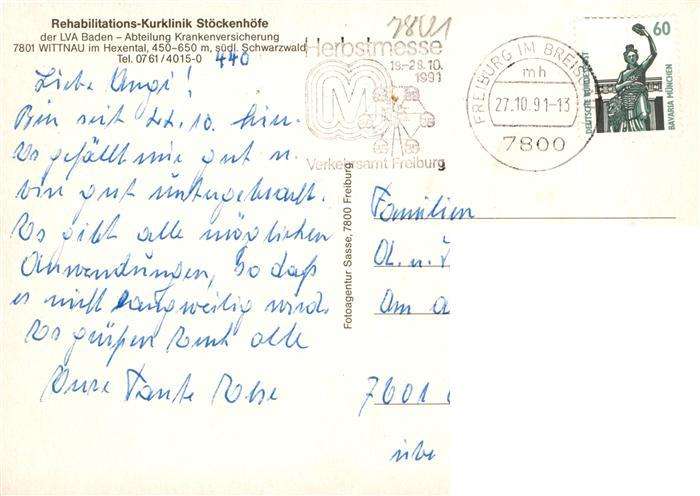 Rehabilitations-Kurklinik Stöckenhöfe
der LVA Baden – Abteilung Krankenversicherung
7801 WITTNAU im Hexental, 450–650 m, südl. Schwarzwald
Tel. 07 61 / 40 15-0 440
7801
Herbstmesse
19.-28.10.
1991
M
Verkehrsamt Freiburg
FREIBURG IM BREIS
mh
27.10.91-13
7800
60
DEUTSCHE BUNDESPOST
BAVARIA MÜNCHEN
Liebe Angi!
Bin seit 22.10. hier.
Es gefällt mir gut u.
bin gut untergebracht.
Es gibt alle möglichen
Anwendungen, so daß
es nicht langweilig wird.
Es grüßen Euch alle
Eure Tante Rose
Fotoagentur Sasse, 7800 Freiburg
Familien
u.
Am
7601